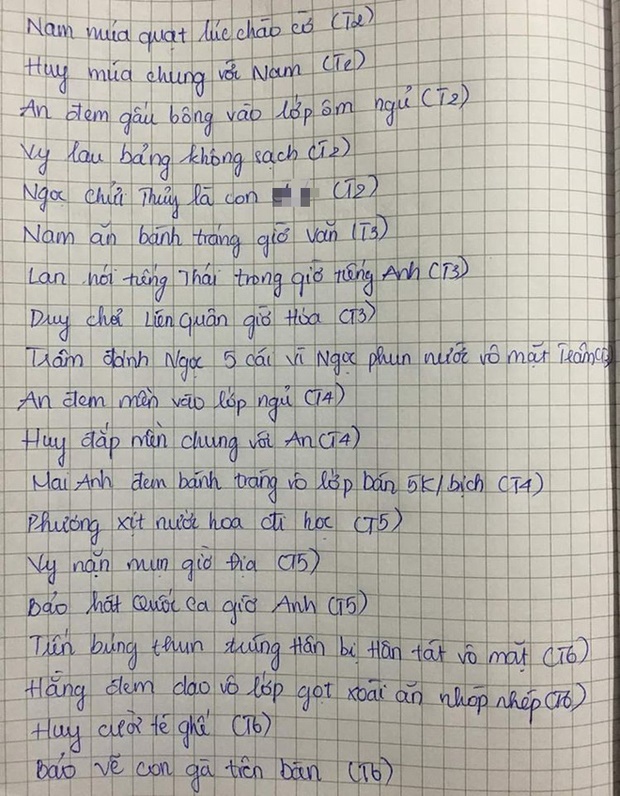 Nam múa quạt lúc chào cờ (T2)
Huy múa chung với Nam (T2)
An đem gấu bông vào lớp ôm ngủ (T2)
Vy lau bảng không sạch (T2)
Ngọc chửi Thủy là con (T2)
Nam ăn bánh tráng giờ Văn (T3)
Lan nói tiếng Thái trong giờ tiếng Anh (T3)
Duy chơi Liên Quân giờ Hóa (T3)
Trâm đánh Ngọc 5 cái vì Ngọc phun nước vô mặt Trâm
An đem mền vào lớp ngủ (T4)
Huy đắp mền chung với An (T4)
Mai Anh đem bánh tráng vô lớp bán 5K/bịch (T4)
Phương xịt nước hoa đi học (T5)
Vy nặn mụn giờ Địa (T5)
Bảo hát Quốc ca giờ Anh (T5)
Tiến búng thun trúng Hân bị Hân tát vô mặt (T6)
Hằng đem dao vô lớp gọt xoài ăn nhóp nhép (T6)
Huy cười té ghế (T6)
Bảo vẽ con gà trên bàn (T6)